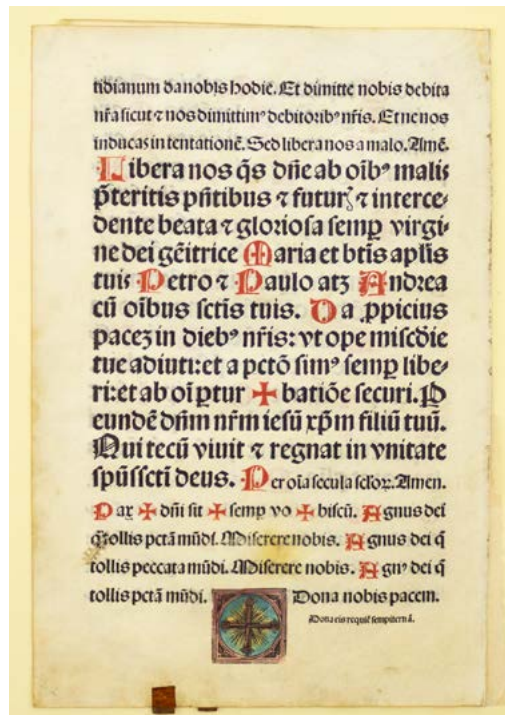 tidianum da nobis hodie. Et dimitte nobis debita
nr̃a sicut ⁊ nos dimittim⁹ debitorib⁹ nr̃is. Et ne nos
inducas in tentationē. Sed libera nos a malo. Amē.
Libera nos q̄s dn̄e ab oīb⁹ malis
p̄teritis pn̄tibus ⁊ futurꝭ ⁊ interce⸗
dente beata ⁊ gloriosa semꝑ virgi⸗
ne dei gēitrice Maria et btīs aplīs
tuis Petro ⁊ Paulo atꝫ Andrea
cū oībus sctīs tuis. Da ꝓpicius
paceꝫ in dieb⁹ nr̃is: vt ope mis̄cdie
tue adiuti: et a pctō sim⁹ semꝑ libe⸗
ri: et ab oī ꝑtur ✠ batiōe securi. P
eundē dn̄m nr̃m iesū xp̄m filiū tuū.
Qui tecū viuit ⁊ regnat in vnitate
spūs sctī deus. Per oīa secula sclōꝝ. Amen.
Pax ✠ dn̄i sit ✠ semꝑ vo ✠ biscū. Agnus dei
q̄ tollis pctā mūdi. Miserere nobis. Agnus dei q̄
tollis peccata mūdi. Miserere nobis. Agn⁹ dei q̄
tollis pctā mūdi. Dona nobis pacem.
Dona eis requiē sempiternā.